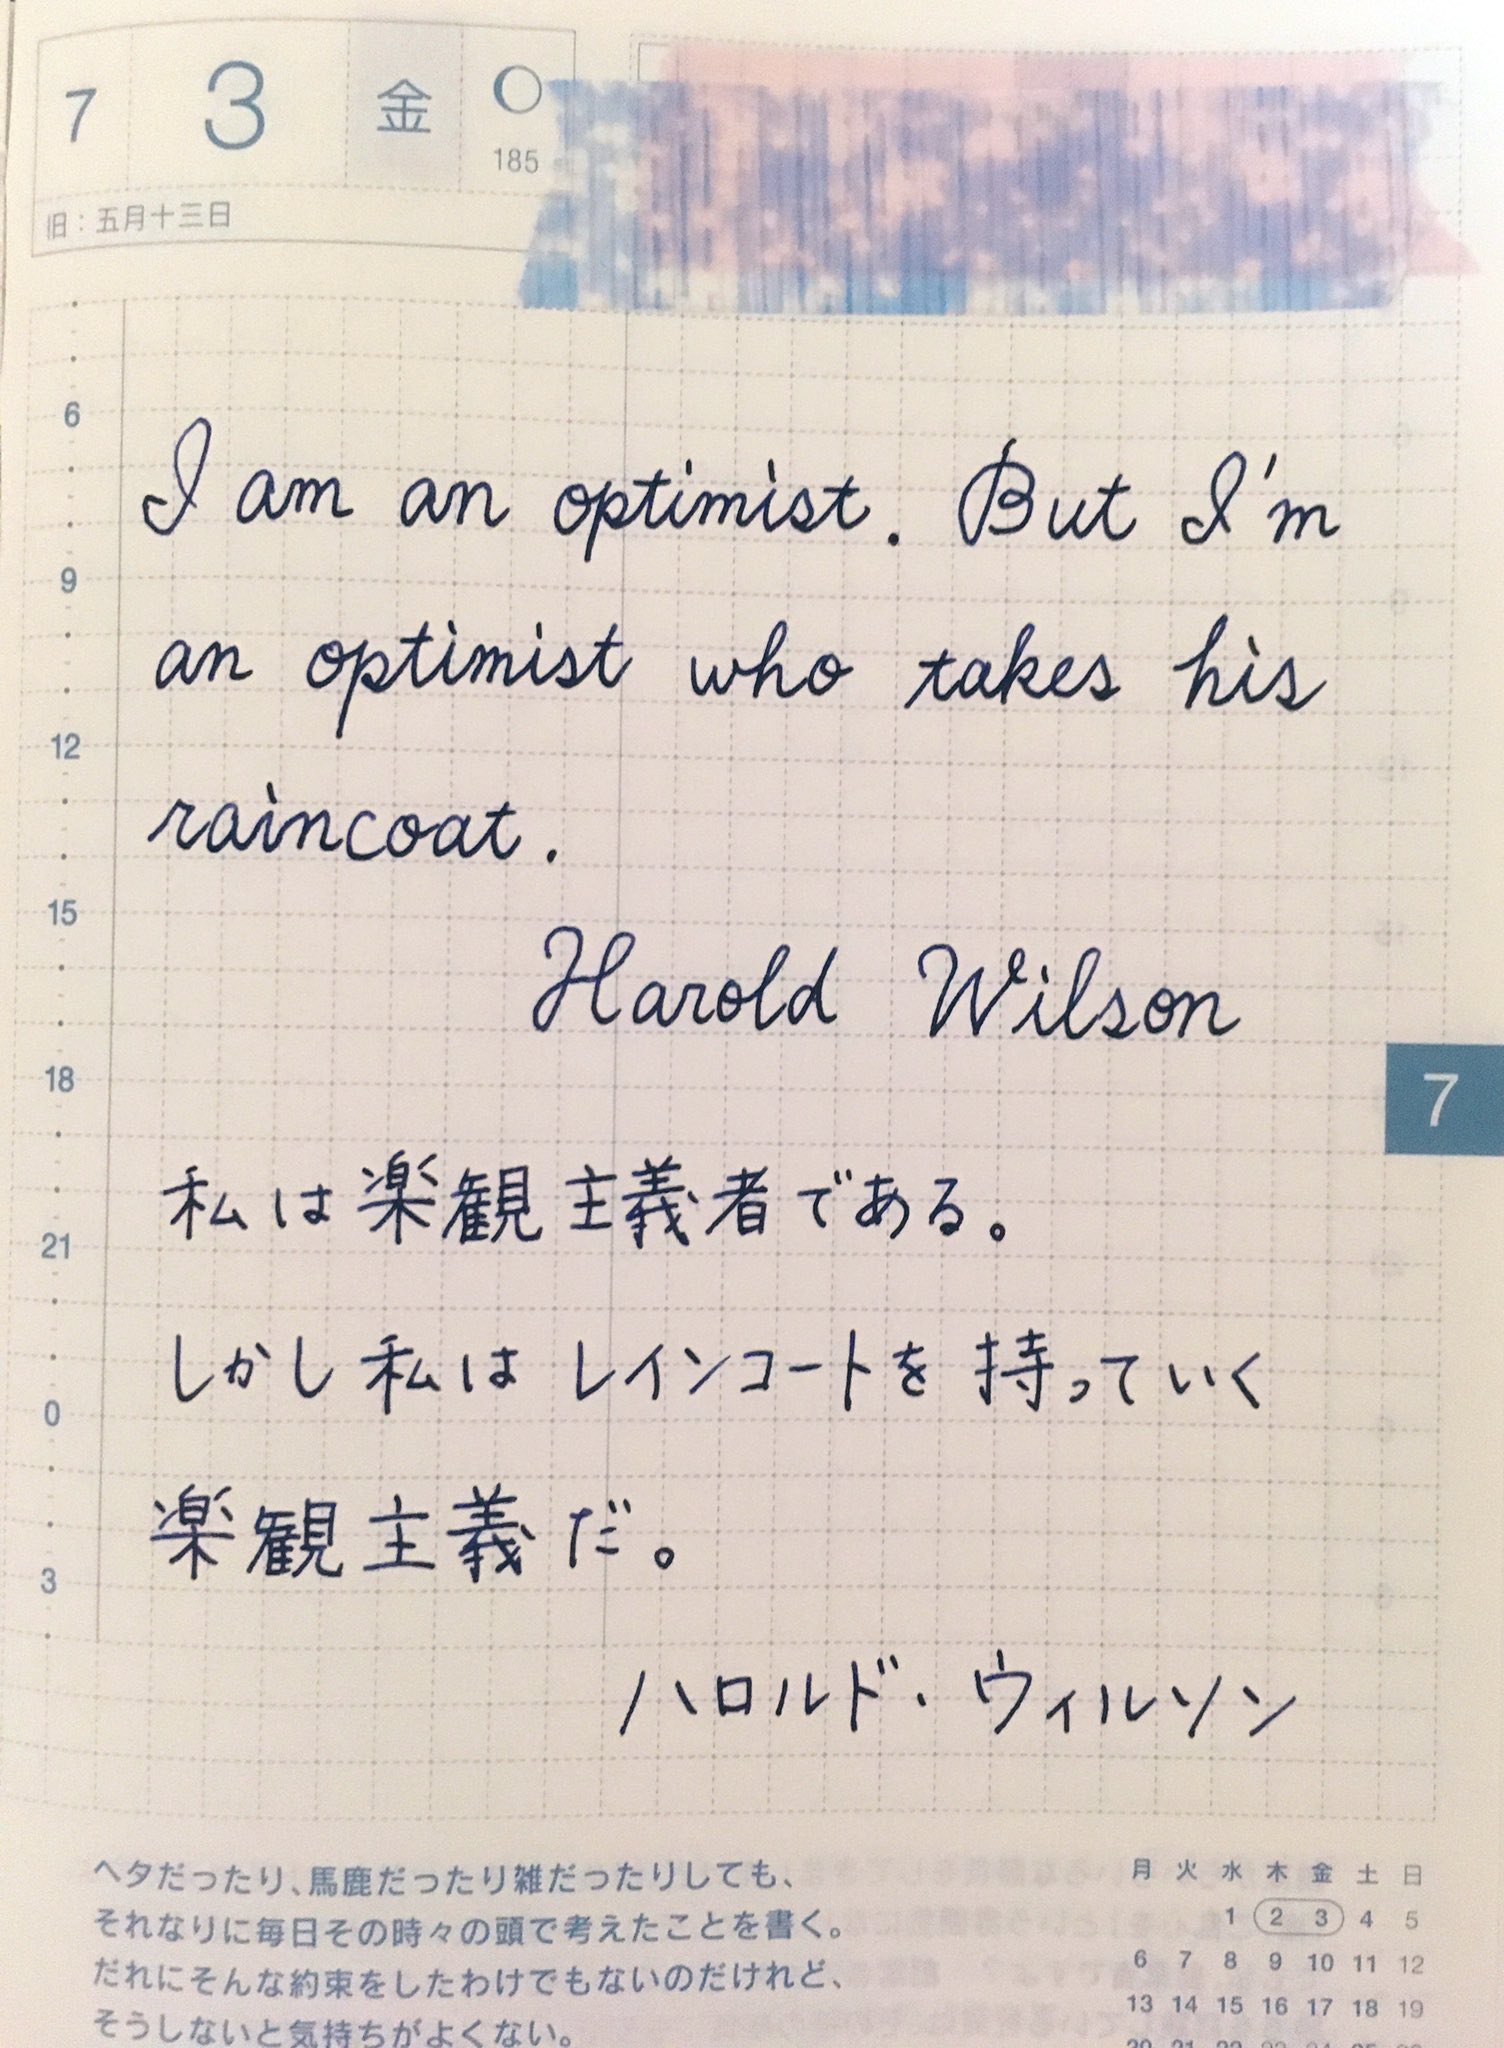 7 3 金
185
旧：五月十三日
6
I am an optimist. But I'm
9
an optimist who takes his
12
raincoat.
15
Harold Wilson
18
7
私は楽観主義者である。
21
しかし私はレインコートを持っていく
0
楽観主義だ。
3
ハロルド・ウィルソン
ヘタだったり、馬鹿だったり雑だったりしても、
それなりに毎日その時々の頭で考えたことを書く。
だれにそんな約束をしたわけでもないのだけれど、
そうしないと気持ちがよくない。
月 火 水 木 金 土 日
1 2 3 4 5
6 7 8 9 10 11 12
13 14 15 16 17 18 19